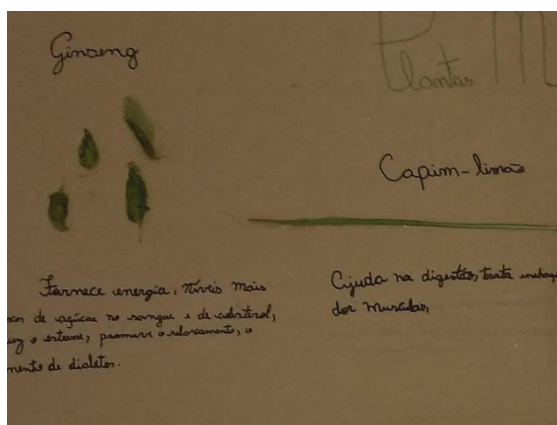 Ginseng
Plantas M
Capim-limão
Fornece energia, níveis mais
de açúcar no sangue e de colesterol,
o estresse, promove o relaxamento, o
de diabetes.
Ajuda na digestão, trata
dor muscular,